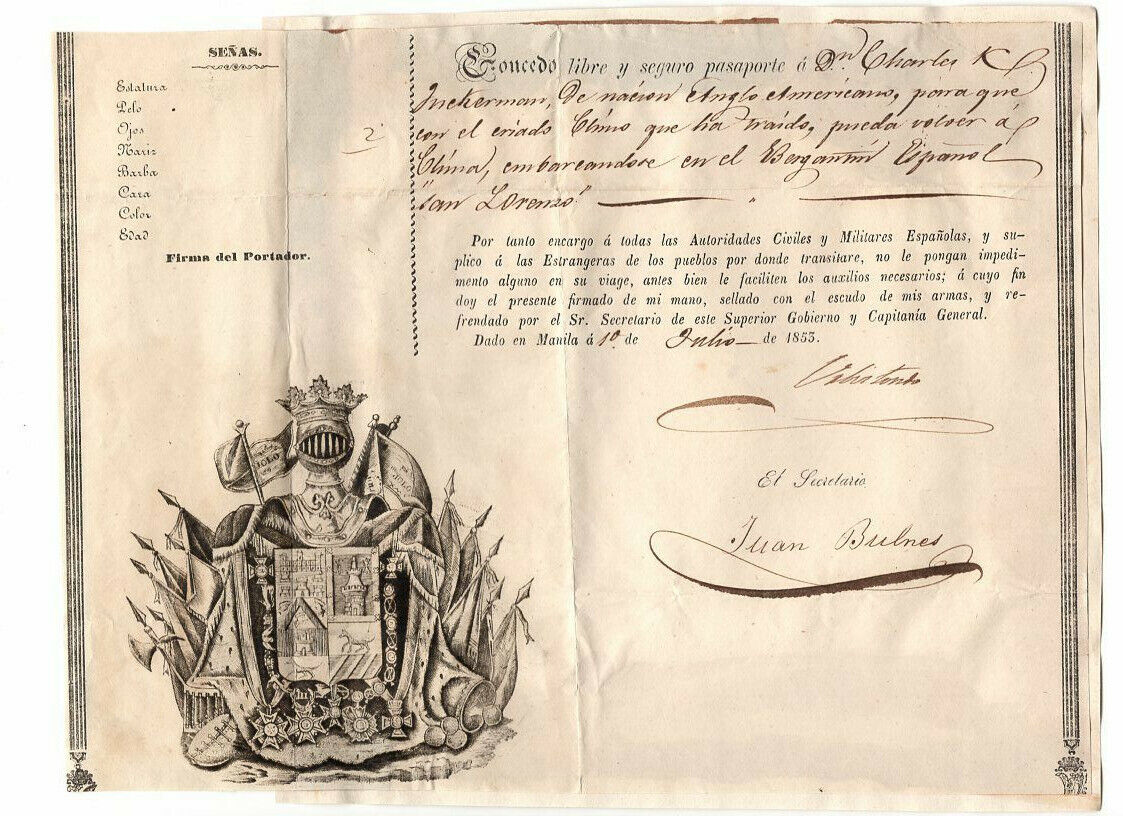 SEÑAS.
Estatura
Pelo
Ojos
Nariz
Barba
Cara
Color
Edad
Firma del Portador.
2
Concedo libre y seguro pasaporte á Dn Charles K
Tuckerman, de nacion Anglo Americano, para que
con el criado Chino que ha traido, pueda volver á
China, embarcandose en el Bergantin Español
"San Lorenzo"
Por tanto encargo á todas las Autoridades Civiles y Militares Españolas, y su-
plico á las Estrangeras de los pueblos por donde transitare, no le pongan impedi-
mento alguno en su viage, antes bien le faciliten los auxilios necesarios; á cuyo fin
doy el presente firmado de mi mano, sellado con el escudo de mis armas, y re-
frendado por el Sr. Secretario de este Superior Gobierno y Capitanía General.
Dado en Manila á 1º de Julio de 1853.
El Secretario
Juan Bulnes
JOLO